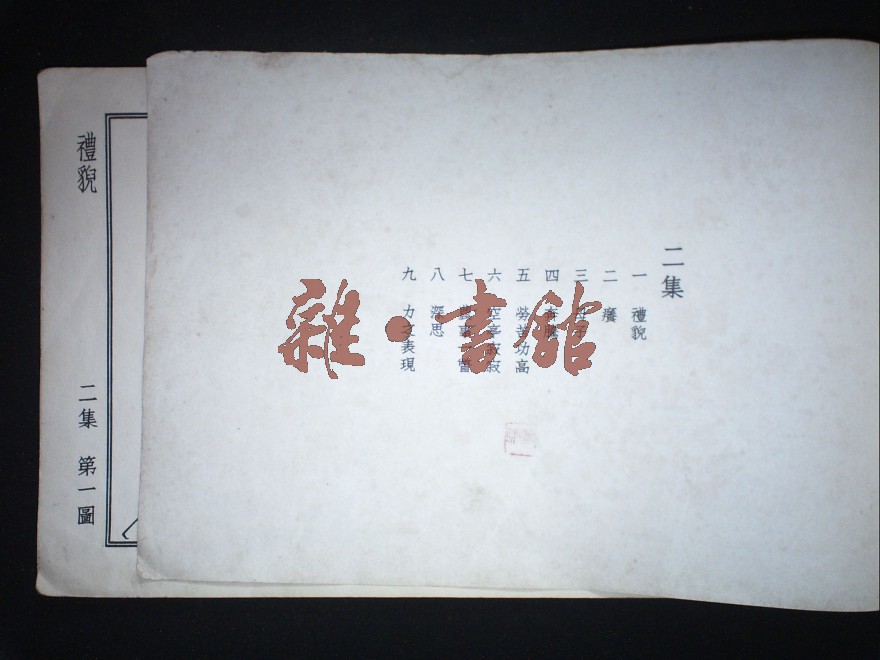 二集
一 禮貌
二 癢
三
四
五 勞苦功高
六 空亭寂寂
七
八 深思
九 力之表現
禮貌
二集 第一圖
雜·書館